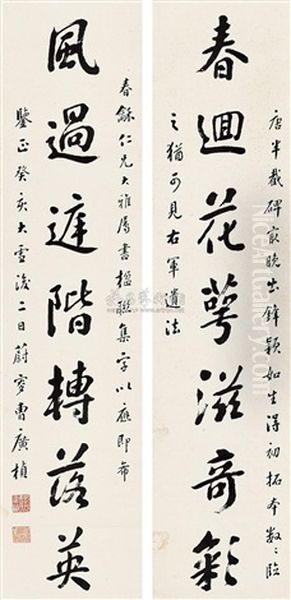 春迴花萼滋奇彩
唐半截碑最晚出鋒穎如生得初拓本數數臨
之猶可見右軍遺法
風過庭階轉落英
春龢仁兄大雅屬書楹聯集字以應即希
鑒正癸亥大雪後二日蔚穸曹廣楨